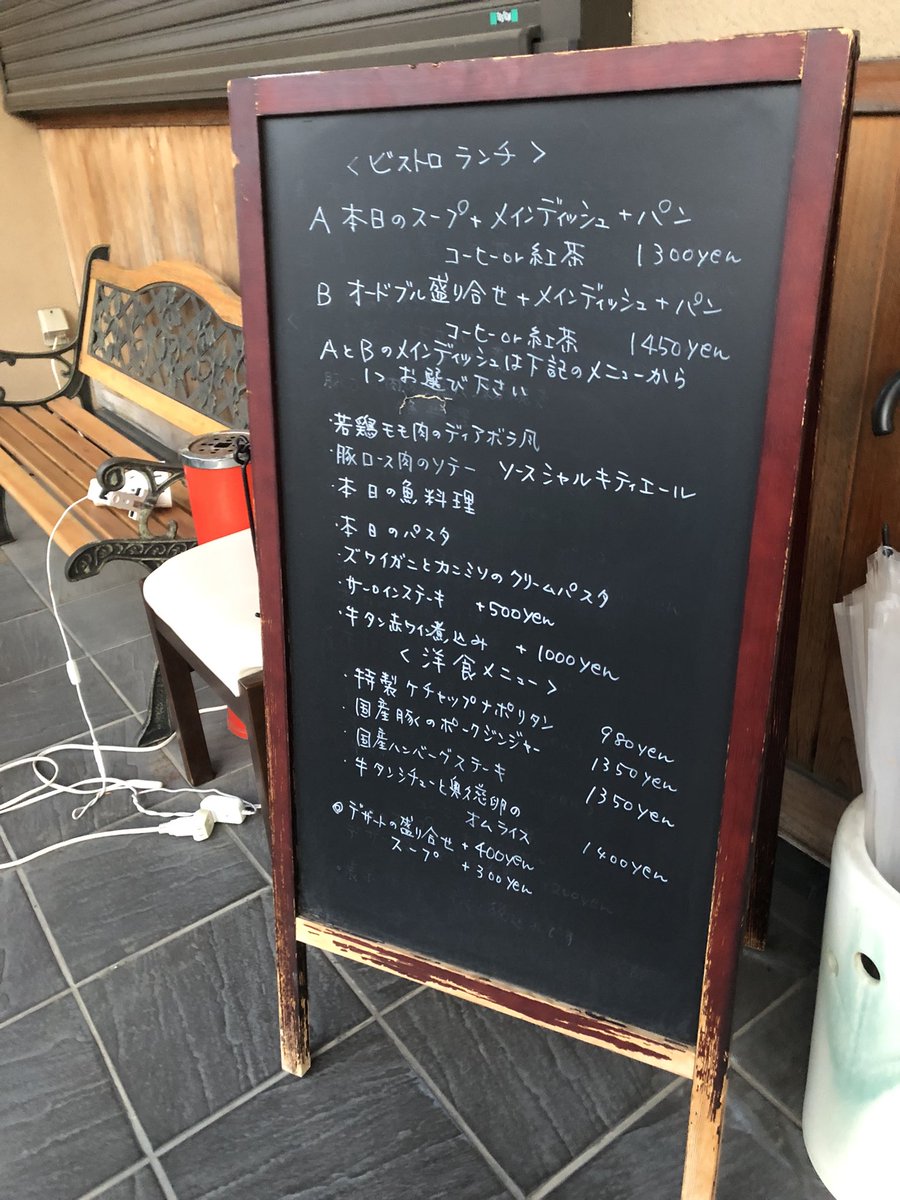 <ビストロ ランチ>
A 本日のスープ+メインディッシュ+パン
コーヒーor紅茶 1300yen
B オードブル盛り合せ+メインディッシュ+パン
コーヒーor紅茶 1450yen
AとBのメインディッシュは下記のメニューから
1つお選び下さい
・若鶏モモ肉のディアボラ風
・豚ロース肉のソテー ソースシャルキティエール
・本日の魚料理
・本日のパスタ
・ズワイガニとカニミソのクリームパスタ
・サーロインステーキ +500yen
・牛タン赤ワイン煮込み +1000yen
<洋食メニュー>
・特製ケチャップナポリタン 980yen
・国産豚のポークジンジャー 1350yen
・国産ハンバーグステーキ 1350yen
・牛タンシチューと奥久慈卵の
オムライス 1400yen
◎デザートの盛り合せ +400yen
スープ +300yen